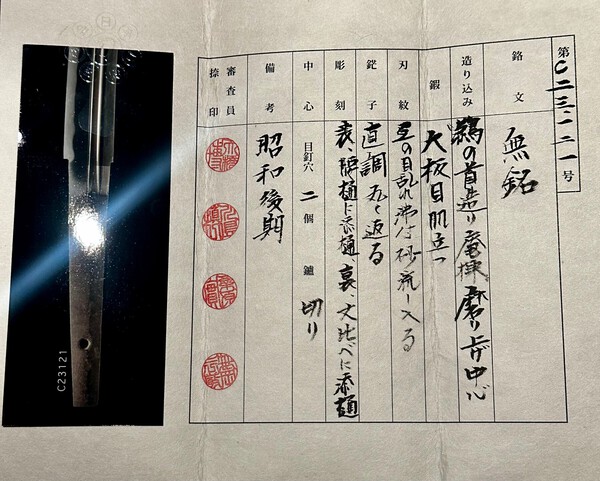 第C二三一二一号
銘文 無銘
造り込み 鵜の首造り 庵棟 磨り上げ中心
鍛 大板目肌立つ
刃紋 互の目乱れ 沸付 砂流し入る
鋩子 直調 丸く返る
彫刻 表、腰樋に添樋、裏、丈比べに添樋
中心 目釘穴 二個 鑢 切り
備考 昭和後期
審査員
捺印
C23121